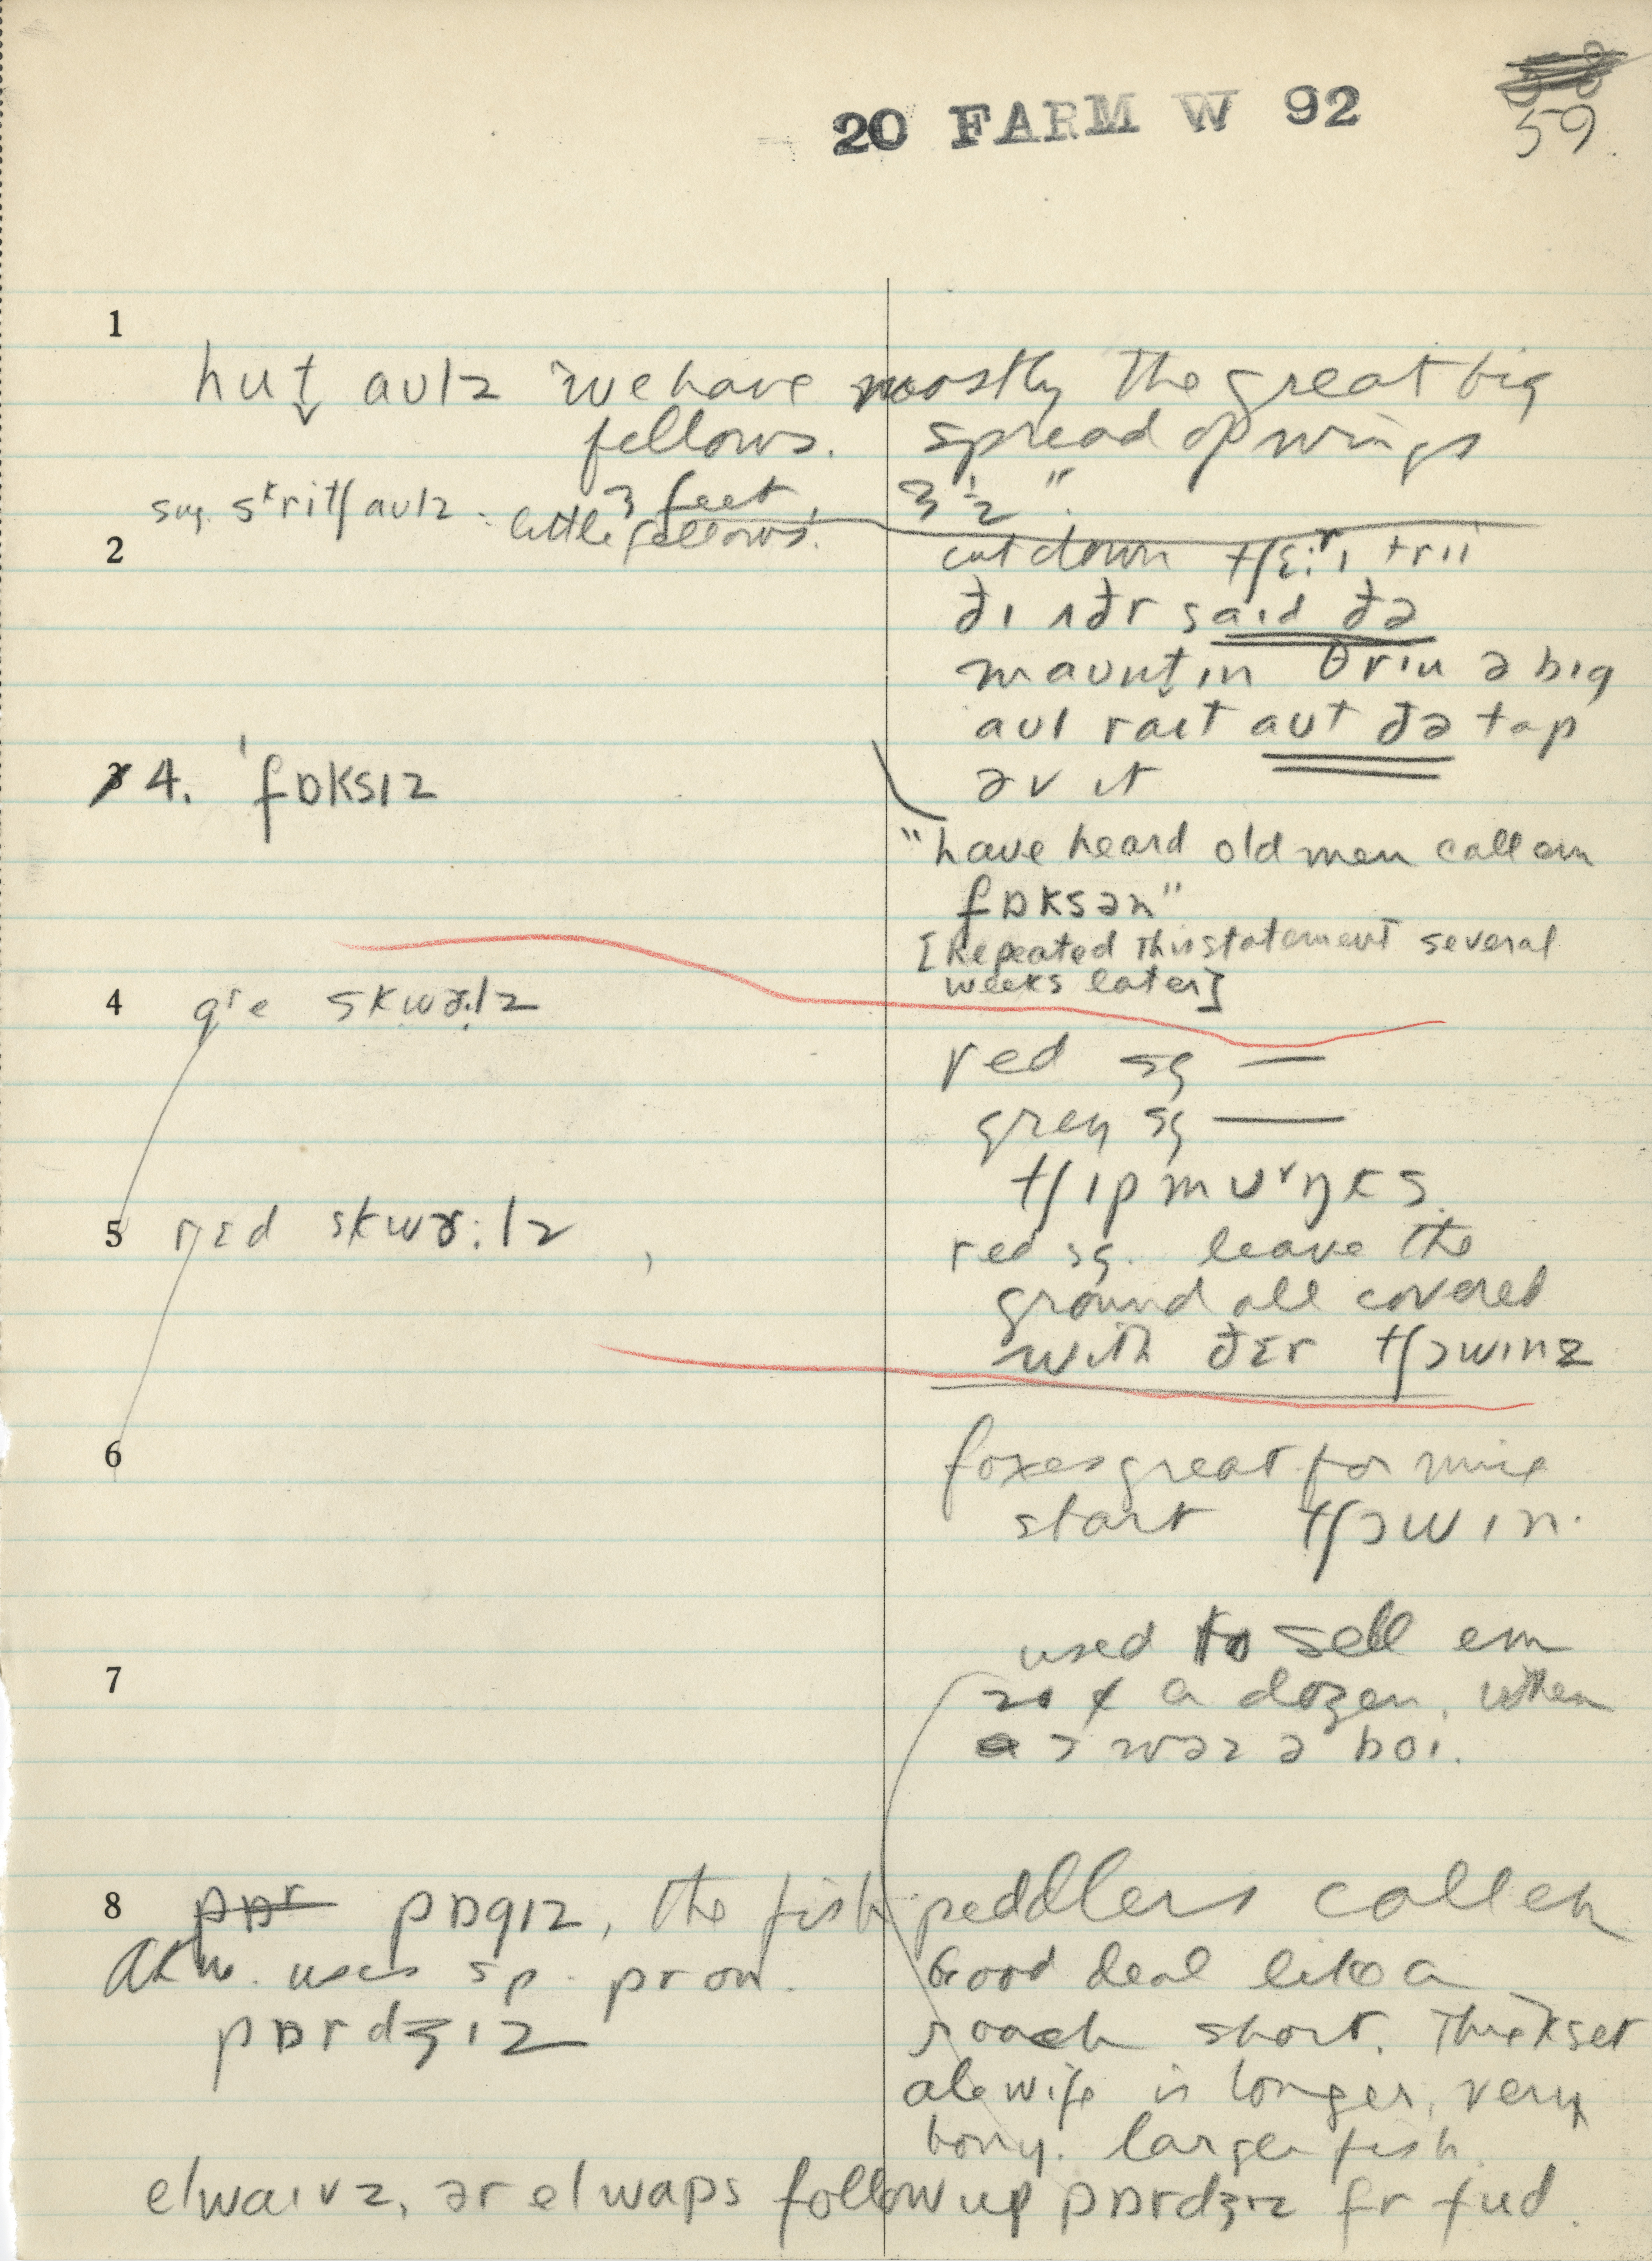 20 FARM W 92
59
1
hut̬ aulz we have mostly the great big
fellows. spread of wings
3 feet, 3 ½ ".
sug. skritʃ aulz - little fellows.
2
cut down tʃɛrɪ trii
ðɪ ʌðr said ðə
maunt̬ɪn θrɪu ə bɪg
aul raɪt aut ðə tap
əv ɪt
4. ˈfɒksɪz
"have heard old men call em
fɒksən"
[Repeated this statement several
weeks later]
4 gre skwɝ·lz
red sq —
grey sq —
tʃɪpmʌŋks
5 rɛd skwɝ:lz
red sq. leave the
ground all covered
with ðɛr tʃɔwɪnz
6
foxes great for mice
start tʃɔwɪn.
7
used to sell em
20 ¢ a dozen, when
ə wəz ə boɪ.
8 pɒr pɒgɪz, the fish peddlers call em
uses sp. pron.
pɒrdʒɪz
Good deal like a
roach short. Thickset
alewife is longer, very
bony. larger fish
elwaɪvz, ər elwaps follow up pɒrdʒɪz fr fud.